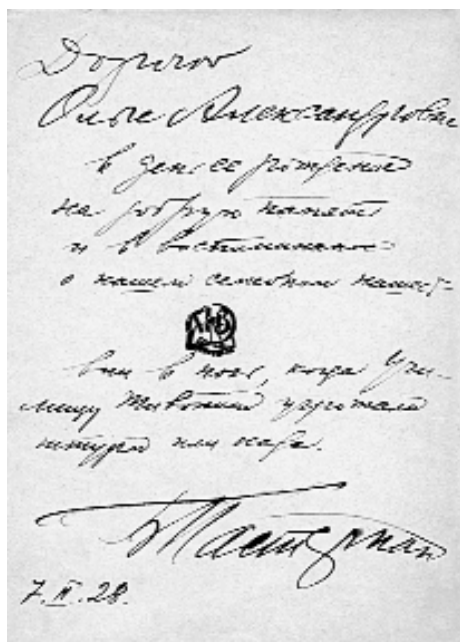 Дорогой
Ольге Александровне
в день ее рождения
на добрую память
и в воспоминание
о нашем семейном нашест-
вии в ночь, когда
или
Б Пастернак
7.II.28.